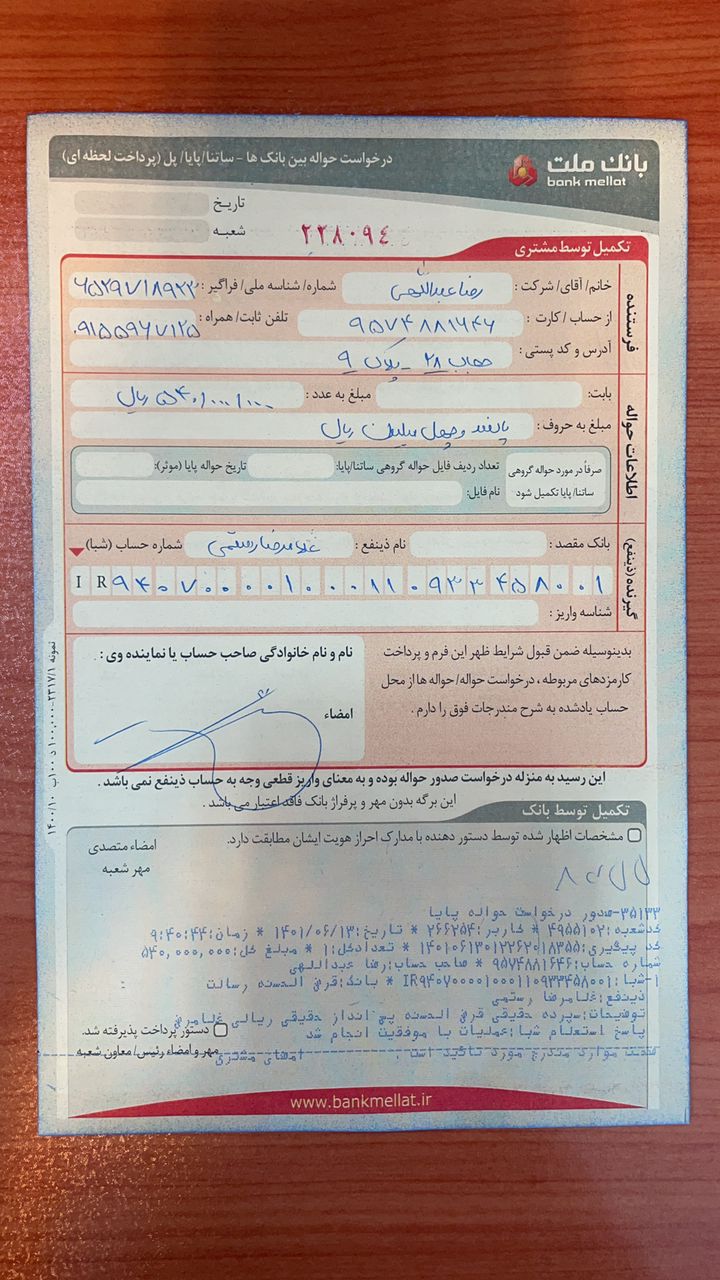 بانک ملت
bank mellat
درخواست حواله بین بانک ها - ساتنا/پایا/ پل (پرداخت لحظه ای)
تاریخ
شعبه
۲۲۸۰۹۴
تکمیل توسط مشتری
فرستنده
خانم/ آقای/ شرکت : رضا عبداللهی شماره/ شناسه ملی/ فراگیر :
از حساب / کارت : ۹۵۷۴۸۸۱۶۴۶ تلفن ثابت/ همراه : ۰۹۱۵۵۹۶۷۱۲۵
آدرس و کد پستی : ۲۸ - پلاک ۹
اطلاعات حواله
بابت: مبلغ به عدد : ۵۴۰/۰۰۰/۰۰۰ ریال
مبلغ به حروف : پانصد و چهل میلیون ریال
صرفاً در مورد حواله گروهی ساتنا/ پایا تکمیل شود
تعداد ردیف فایل حواله گروهی ساتنا/پایا: تاریخ حواله پایا (موثر):
نام فایل:
گیرنده (ذینفع)
بانک مقصد : نام ذینفع : غلامرضا رستمی شماره حساب (شبا)
IR ۹۴۰۷۰۰۰۰۱۰۰۰۱۱۰۹۳۳۴۵۸۰۰۱
شناسه واریز :
بدینوسیله ضمن قبول شرایط ظهر این فرم و پرداخت
کارمزدهای مربوطه ، درخواست حواله/ حواله ها از محل
حساب یادشده به شرح مندرجات فوق را دارم .
نام و نام خانوادگی صاحب حساب یا نماینده وی :
امضاء
این رسید به منزله درخواست صدور حواله بوده و به معنای واریز قطعی وجه به حساب ذینفع نمی باشد .
این برگه بدون مهر و پرفراژ بانک فاقد اعتبار می باشد .
تکمیل توسط بانک
مشخصات اظهار شده توسط دستور دهنده با مدارک احراز هویت ایشان مطابقت دارد.
امضاء متصدی
مهر شعبه
۳۵۱۳۳-صدور درخواست حواله پایا
کدشعبه:۴۹۵۵۱۰۲ * کاربر:۲۶۶۲۵۴ * تاریخ:۱۴۰۱/۰۶/۱۳ * زمان:۹:۴۰:۴۴
کد پیگیری:۱۴۰۱۰۶۱۳۰۱۲۲۶۲۰۱۸۳۵۵ * تعدادکل:۱ * مبلغ کل:۵۴۰,۰۰۰,۰۰۰
شماره حساب:۹۵۷۴۸۸۱۶۴۶ * صاحب حساب:رضا عبداللهی
۱-شبا:IR۹۴۰۷۰۰۰۰۱۰۰۰۱۱۰۹۳۳۴۵۸۰۰۱ * بانک:قرض الحسنه رسالت
ذینفع:غلامرضا رستمی
توضیحات:سپرده حقیقی قرض الحسنه پس انداز حقیقی ریالی غلامرض
پاسخ استعلام شبا:عملیات با موفقیت انجام شد
دستور پرداخت پذیرفته شد.
صحت موارد مندرج مورد تائید است . امضای مشتری
مهر و امضاء رئیس/ معاون شعبه
www.bankmellat.ir